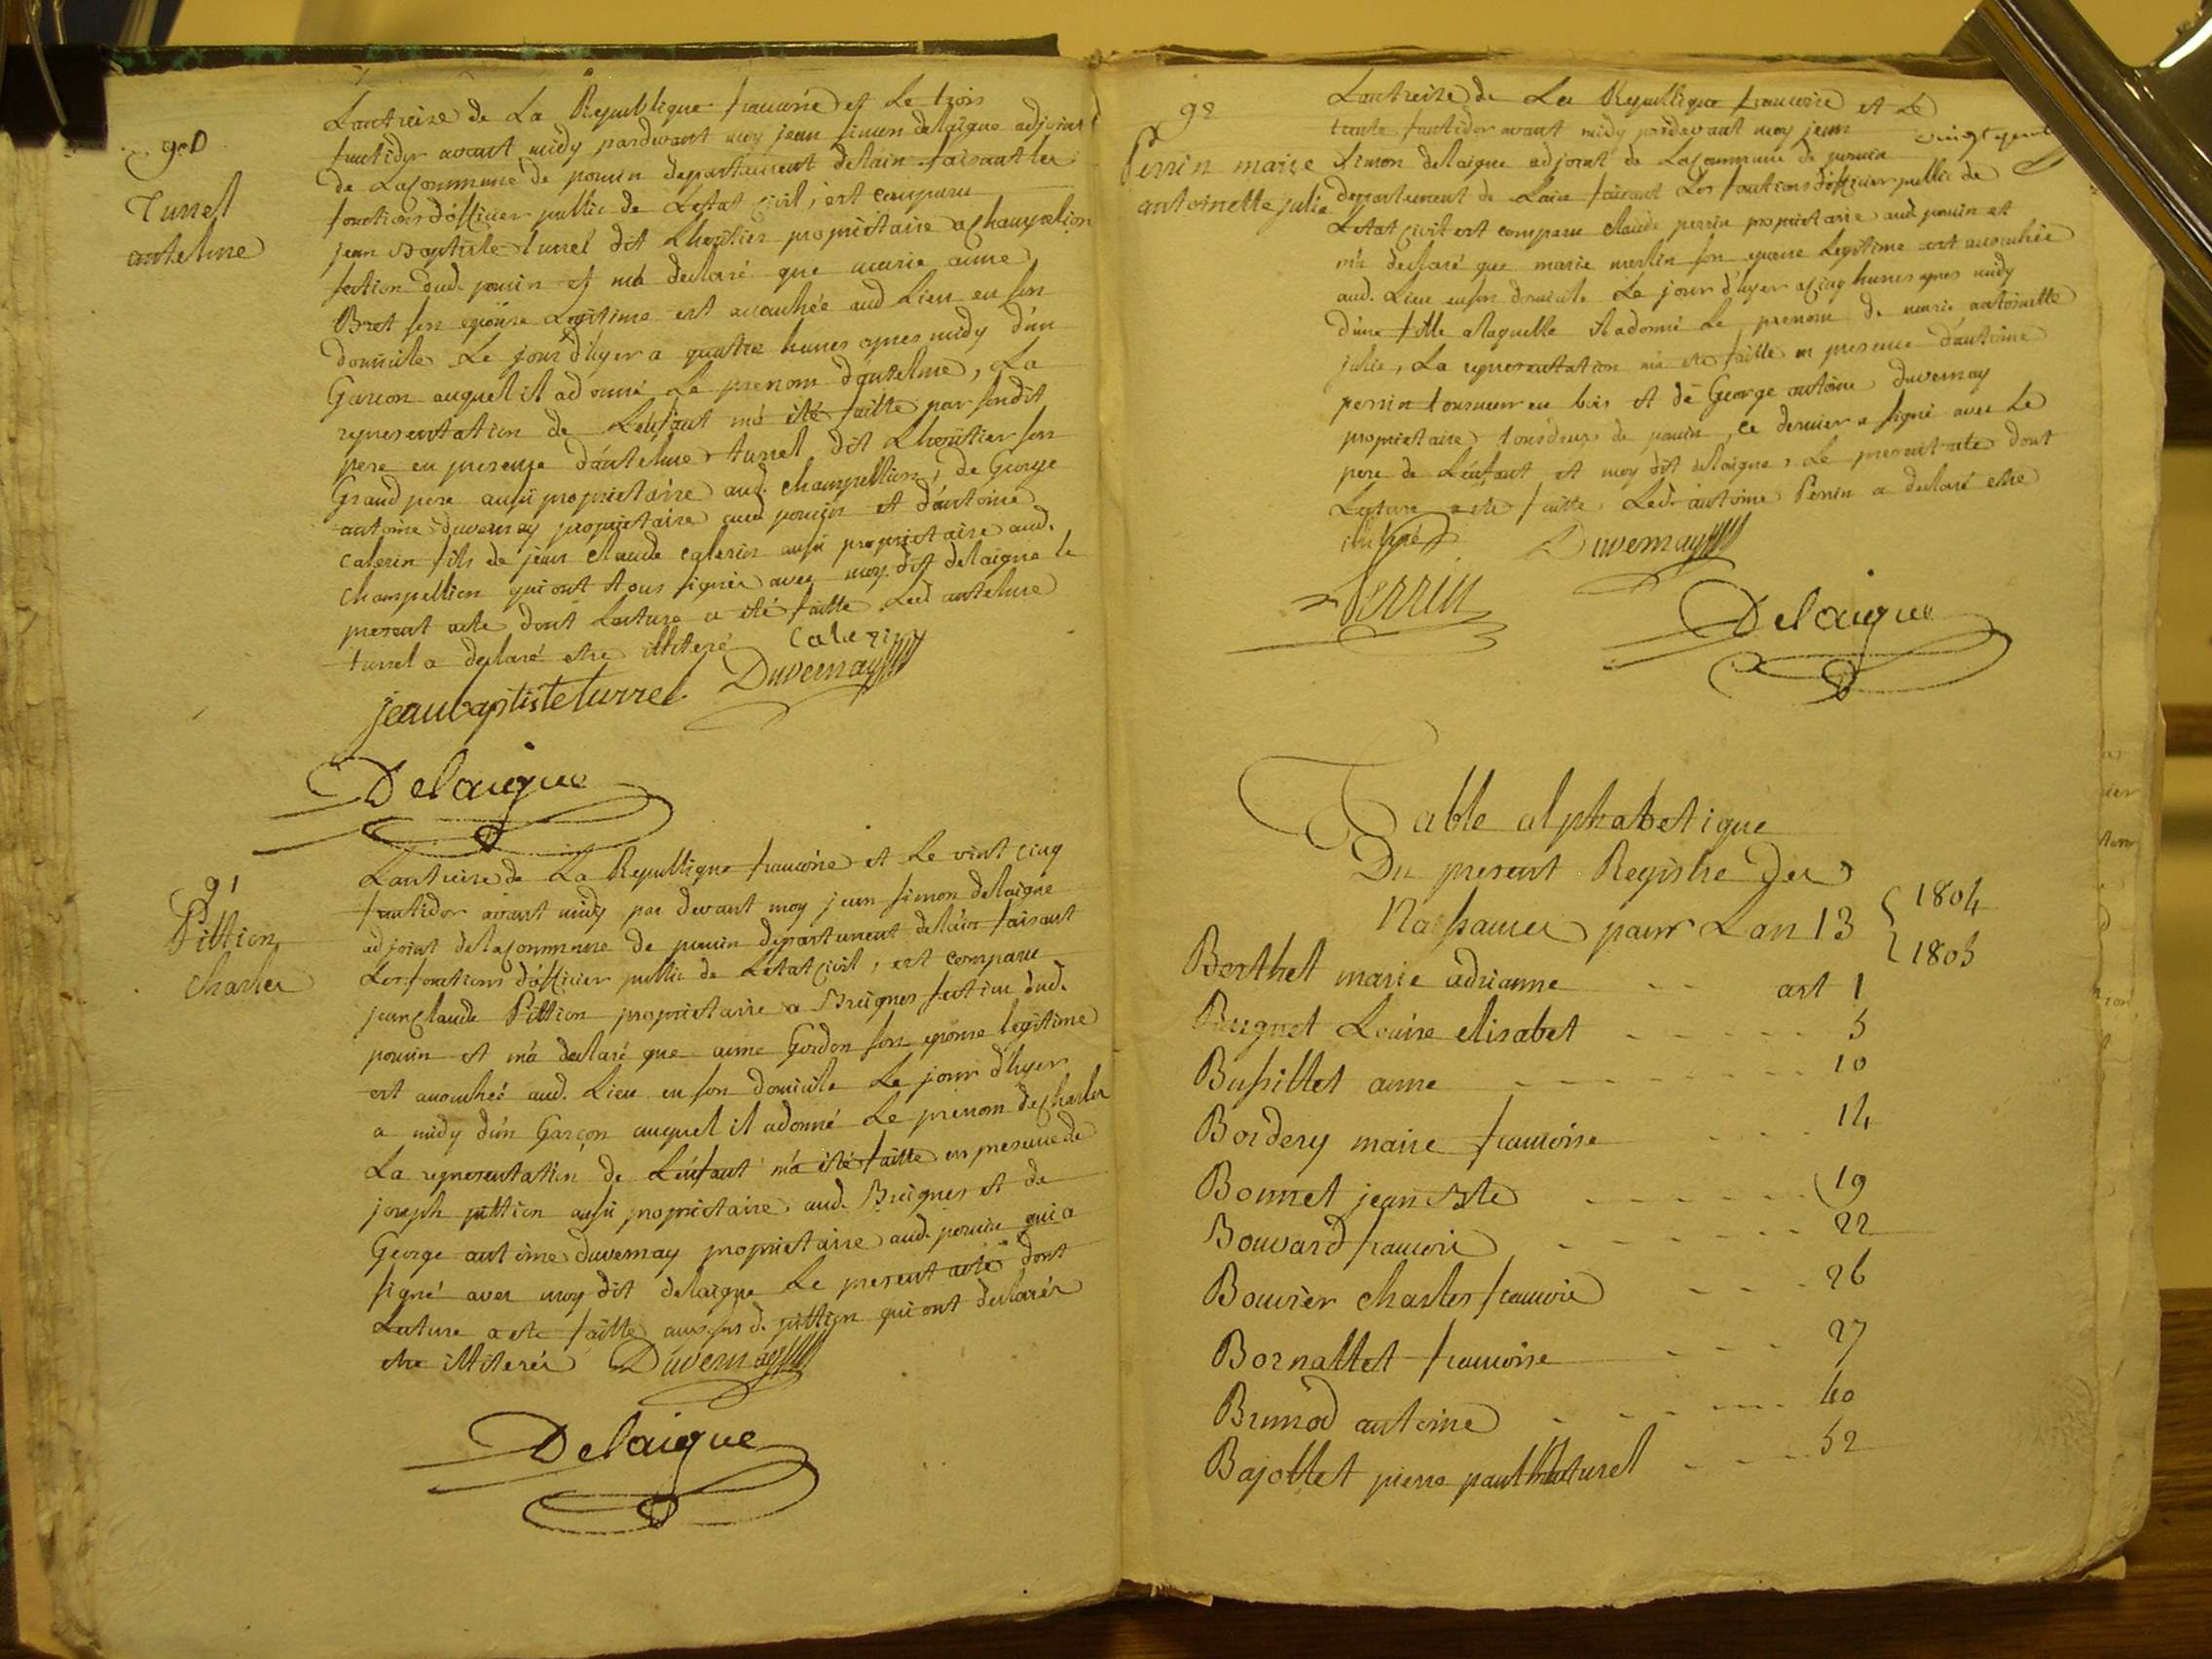 90
Turrel
antelme
Lantreize de La Republique francoise et le trois
fructidor avant midy pardevant moy jean simon delaigue adjoint
de La Commune de pouin departement delain faisant les
fonctions d'officier public de L'estat Civil, est comparu
jean Baptiste turrel dit Lheritier proprietaire a Champelion
section dud. pouin et m'a declaré que marie anne
Bret son epouse Legitime est accouchée aud Lieu en son
domicile Le jour d'hyer a quatre heures apres midy d'un
Garcon auquel il a donné Le prenom d'antelme, La
representation de L'enfant m'a été faitte par son dit
pere en presence d'antelme turrel dit Lheritier son
Grand pere aussi proprietaire aud. champellion, de George
antoine duvernay proprietaire aud pouin et d'antoine
Calerin fils de jean Claude Calerin aussi proprietaire aud.
Champellion qui ont tous signés avec moy dit delaigue le
present acte dont Lecture a été faitte Led antelme
turrel a declaré etre illiteré Calerin
jeanbaptisteturrel Duvernay
Delaigue
91
Pittion
Charles
Lantreize de La Republique francoise et Le vint cinq
fructidor avant midy par devant moy jean simon delaigue
adjoint de la Commune de pouin departement delain faisant
Les fonctions d'officier public de Letat Civil, est comparu
jean Claude Pittion proprietaire a Brugnes section dud.
pouin et m'a declaré que anne Gordon son epouse legitime
est accouchée aud. Lieu en son domicile Le jour d'hyer
a midy d'un Garçon auquel il a donné Le prenom de Charles
La representation de L'enfant m'a été faitte en presence de
joseph pittion aussi proprietaire aud. Brugnes et de
George antoine duvernay proprietaire aud. pouin qui a
signé avec moy dit delaigue Le present acte dont
Lecture a ete faitte aux sus d. pittion qui ont declarés
etre illiterés Duvernay
Delaigue
92
Perrin marie
antoinette julie
Lantreize de La Republique francoise et Le
trente fructidor avant midy pardevant moy jean
simon delaigue adjoint de La Commune de pouin
departement de Lain faisant Les fonctions d'officier public de
L'etat Civil est comparu claude perrin proprietaire aud. pouin et
m'a declaré que marie merlin son epouse Legitime est accouchée
aud. Lieu en son domicile Le jour d'hyer a cinq heures apres midy
d'une fille a laquelle il a donné Le prenom de marie antoinette
julie, La representation m'a ete faitte en presence d'antoine
perrin tourneur en bois et de George antoine duvernay
proprietaire tous deux de pouin, ce dernier a signé avec Le
pere de L'enfant et moy dit delaigue, Le present acte dont
Lecture a ete faitte. Led. antoine Perrin a declaré etre
illiteré Duvernay
Perrin
Delaigue
Table alphabetique
Du present Registre Des
Naissances pour Lan 13 { 1804
1805
Berthet marie adrianne art 1
Bugnet Louise elisabet 5
Bussillet anne 10
Bordery marie francoise 14
Bonnet jean Bte 19
Bouvard francois 22
Bouvier charles francois 26
Bornattet francoise 27
Brunod antoine 40
Bajollet pierre paul Naturel 52